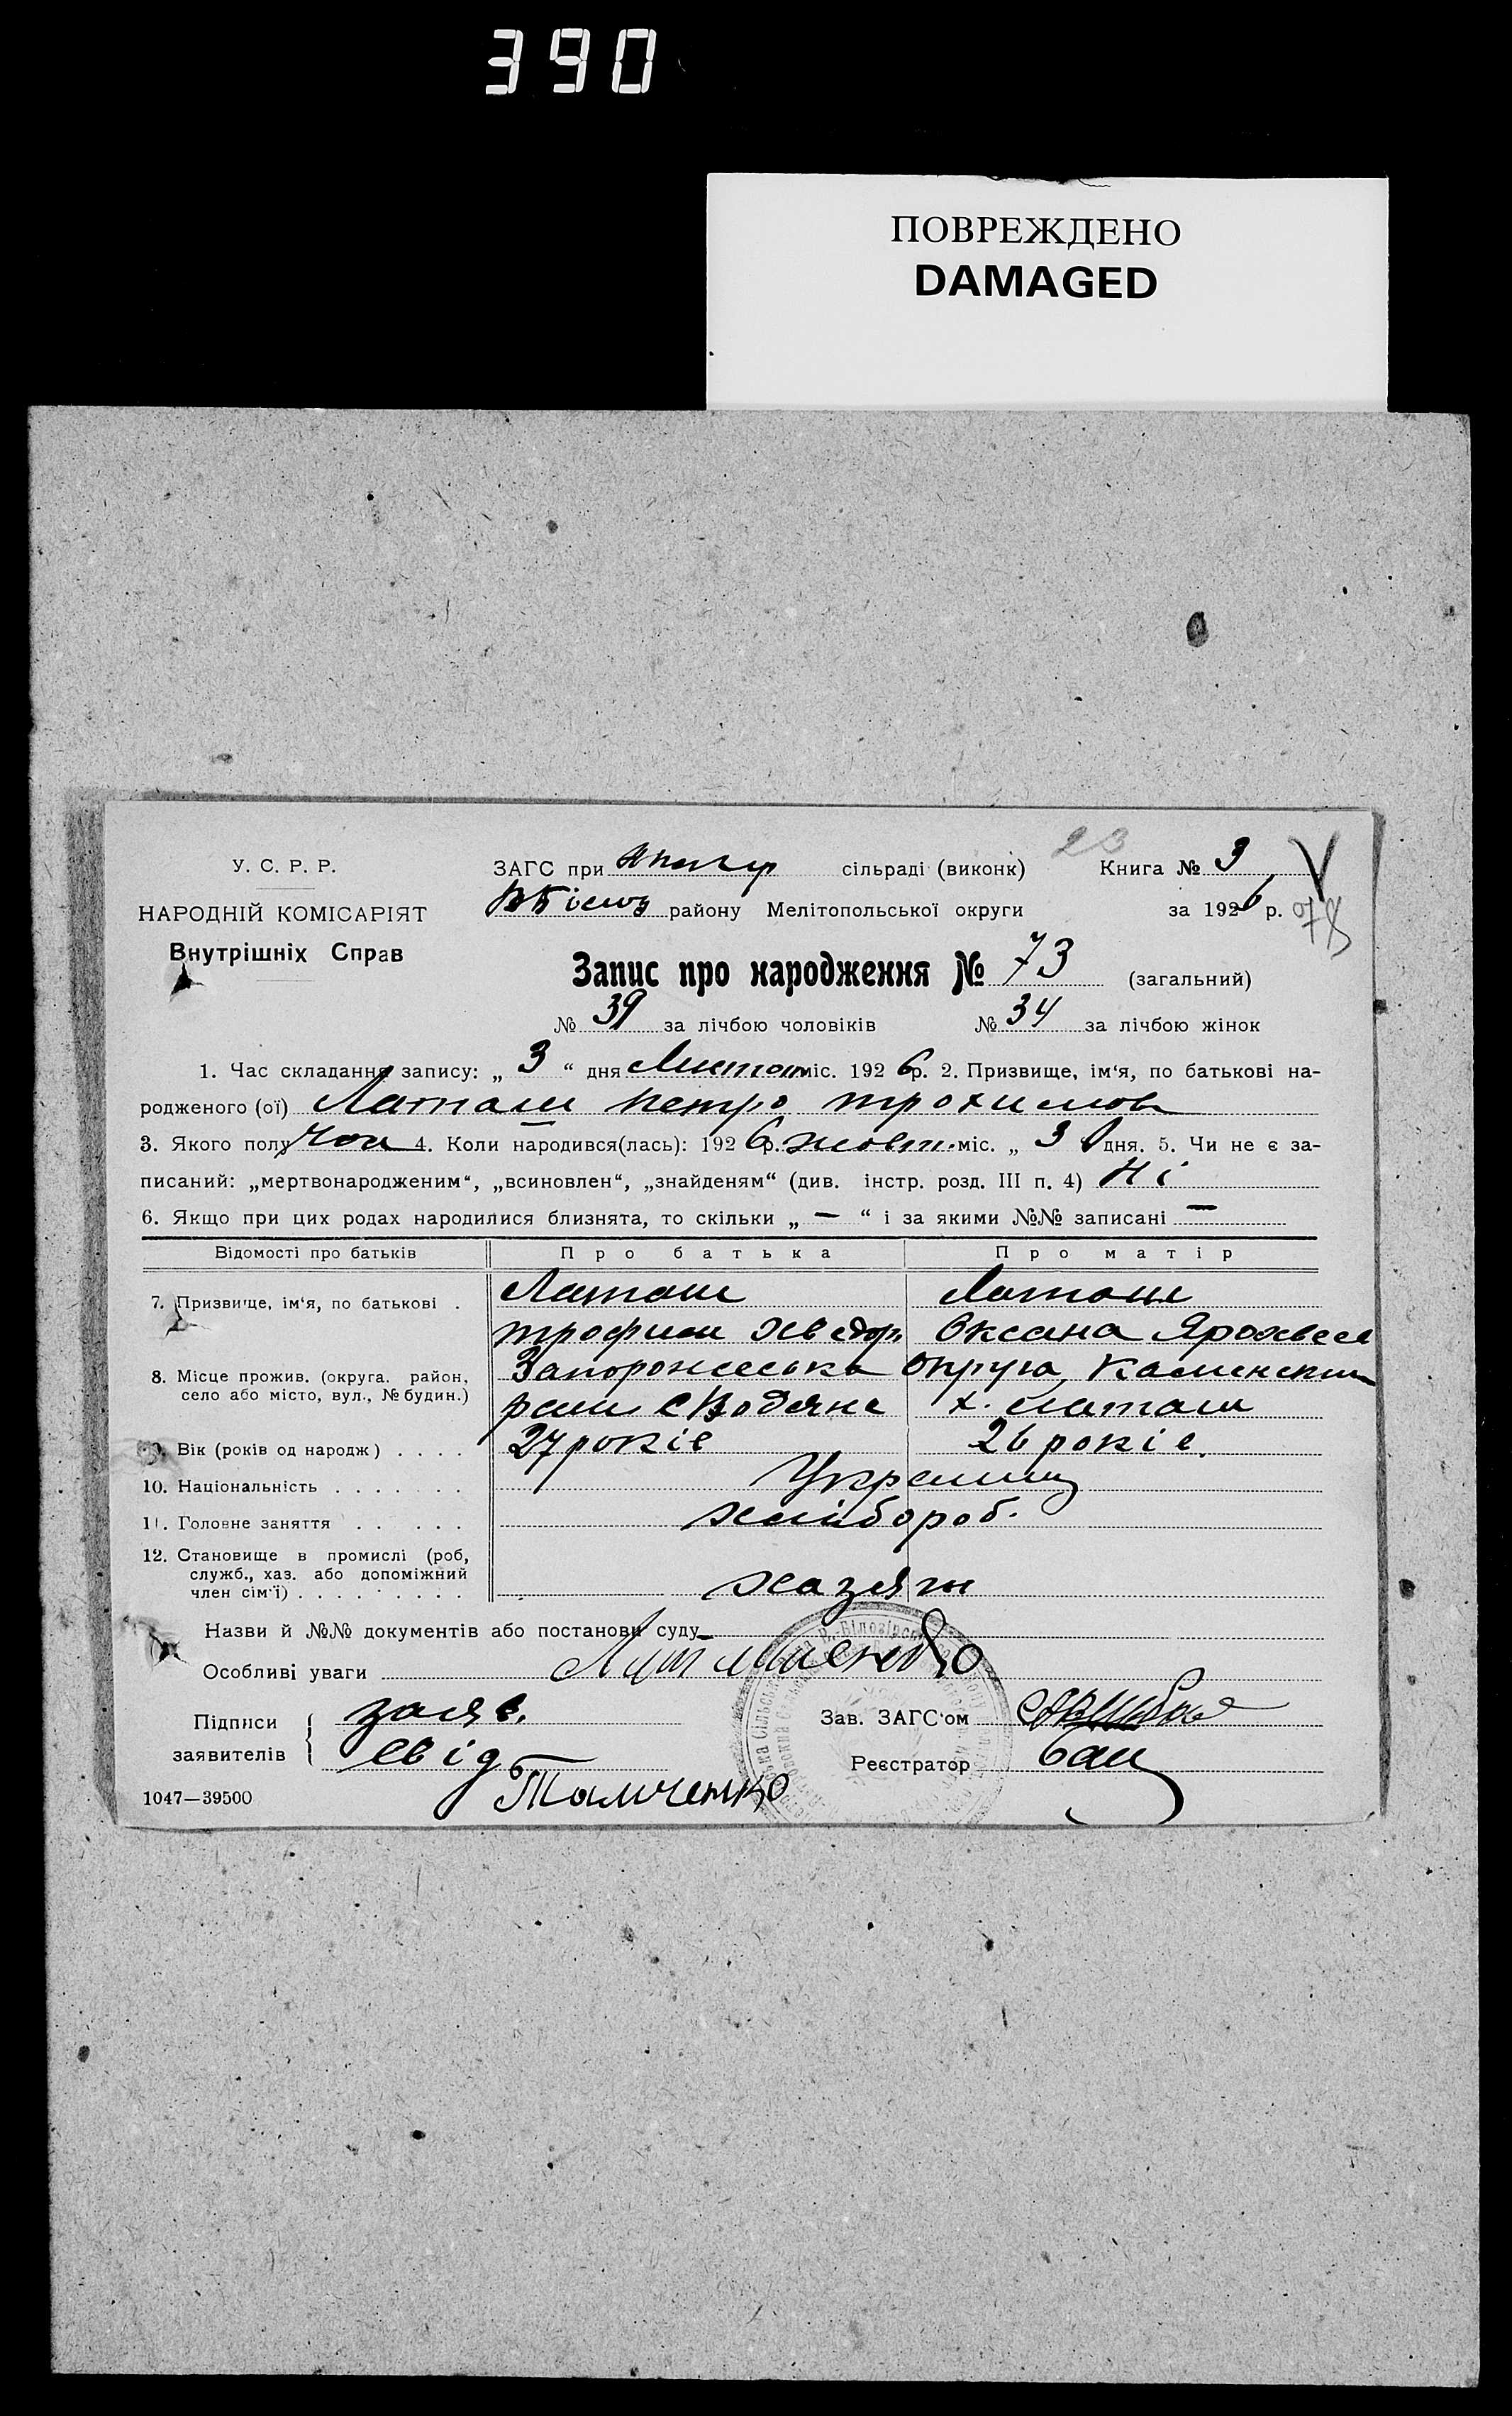 390
ПОВРЕЖДЕНО
DAMAGED
23
У. С. Р. Р.
ЗАГС при сільраді (виконк) Книга № 3
НАРОДНІЙ КОМІСАРІЯТ
району Мелітопольської округи за 1926 р. 78
Внутрішніх Справ
Запис про народження № 73 (загальний)
№ 39 за лічбою чоловіків № 34 за лічбою жінок
1. Час складання запису: „ 3 “ дня Листоп міс. 192 6 р. 2. Призвище, ім‘я, по батькові на-
родженого (ої) Латаш петро трохимов
3. Якого полу Чол 4. Коли народився(лась): 192 6 р. жовт. міс. „ 3 дня. 5. Чи не є за-
писаний: „мертвонародженим“, „всиновлен“, „знайденям“ (див. інстр. розд. III п. 4) Ні
6. Якщо при цих родах народилися близнята, то скільки „ — “ і за якими №№ записані —
Відомості про батьків Про батька Про матір
7. Призвище, ім‘я, по батькові . Латаш Латаш
трофим Хведор Оксана
8. Місце прожив. (округа. район, Запорожська округа, Каменский
село або місто, вул., № будин.) с Водяне х. Латаш
9. Вік (років од народж) . . . . 27 років 26 років.
10. Національність . . . . . . . Украинц
11. Головне заняття . . . . . хлібороб.
12. Становище в промислі (роб,
служб., хаз. або допоміжний
член сім‘ї) . . . . . . . . хазяін
Назви й №№ документів або постанови суду
Особливі уваги
Підписи заяв. Зав. ЗАГС‘ом
заявителів свід Реєстратор
Томченко
1047—39500